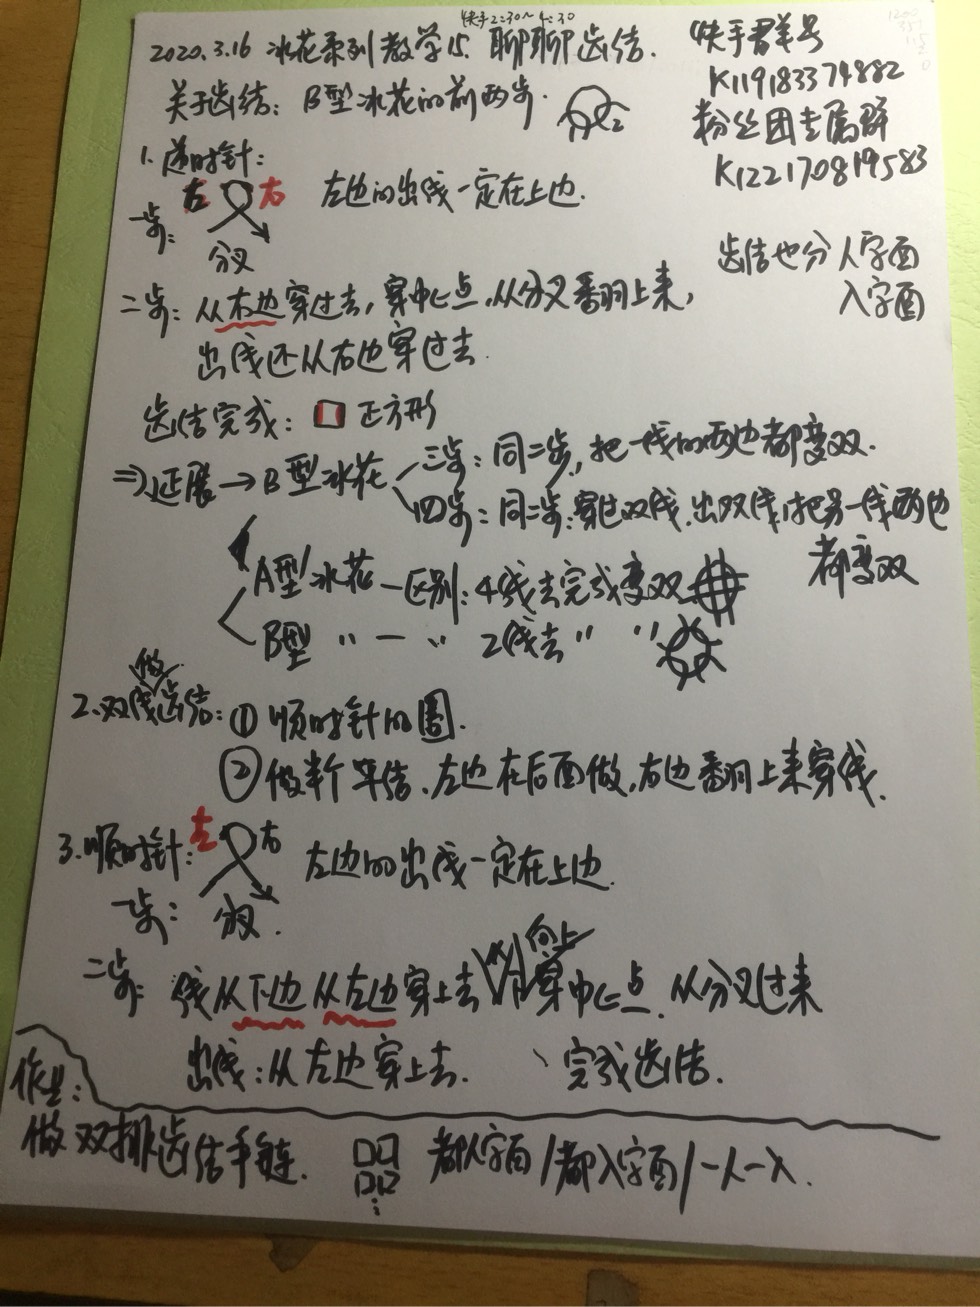 快手2:30~4:30
2020.3.16 冰花系列教学15. 聊聊齿结.
快手群号
K119183374882
粉丝团专属群
K122170819583
关于齿结: B型冰花的前两步.
1. 逆时针:
左 右
左边的出线一定在上边.
一步:
分叉
齿结也分人字面
入字面
二步: 从右边穿过去, 穿中心点, 从分叉翻上来,
出线还从右边穿过去.
齿结完成: 正方形
⇒延展→B型冰花
三步: 同二步, 把一线的两边都变双.
四步: 同二步: 穿过双线, 出双线, 把另一线两边
都变双
A型冰花一区别: 4线去完成变双
B型 〃 一 〃 2线去 〃 〃
2. 双线做齿结: ① 顺时针的圈.
② 做半个单结, 左边在后面做, 右边翻上来穿线.
3. 顺时针:
左 右
左边的出线一定在上边.
一步:
分叉.
二步: 线从下边从左边穿上去 向上 穿中心点. 从分叉过来
出线: 从左边穿上去. 、完成齿结.
作业:
做双排齿结手链. 都人字面/都入字面/一人一入.